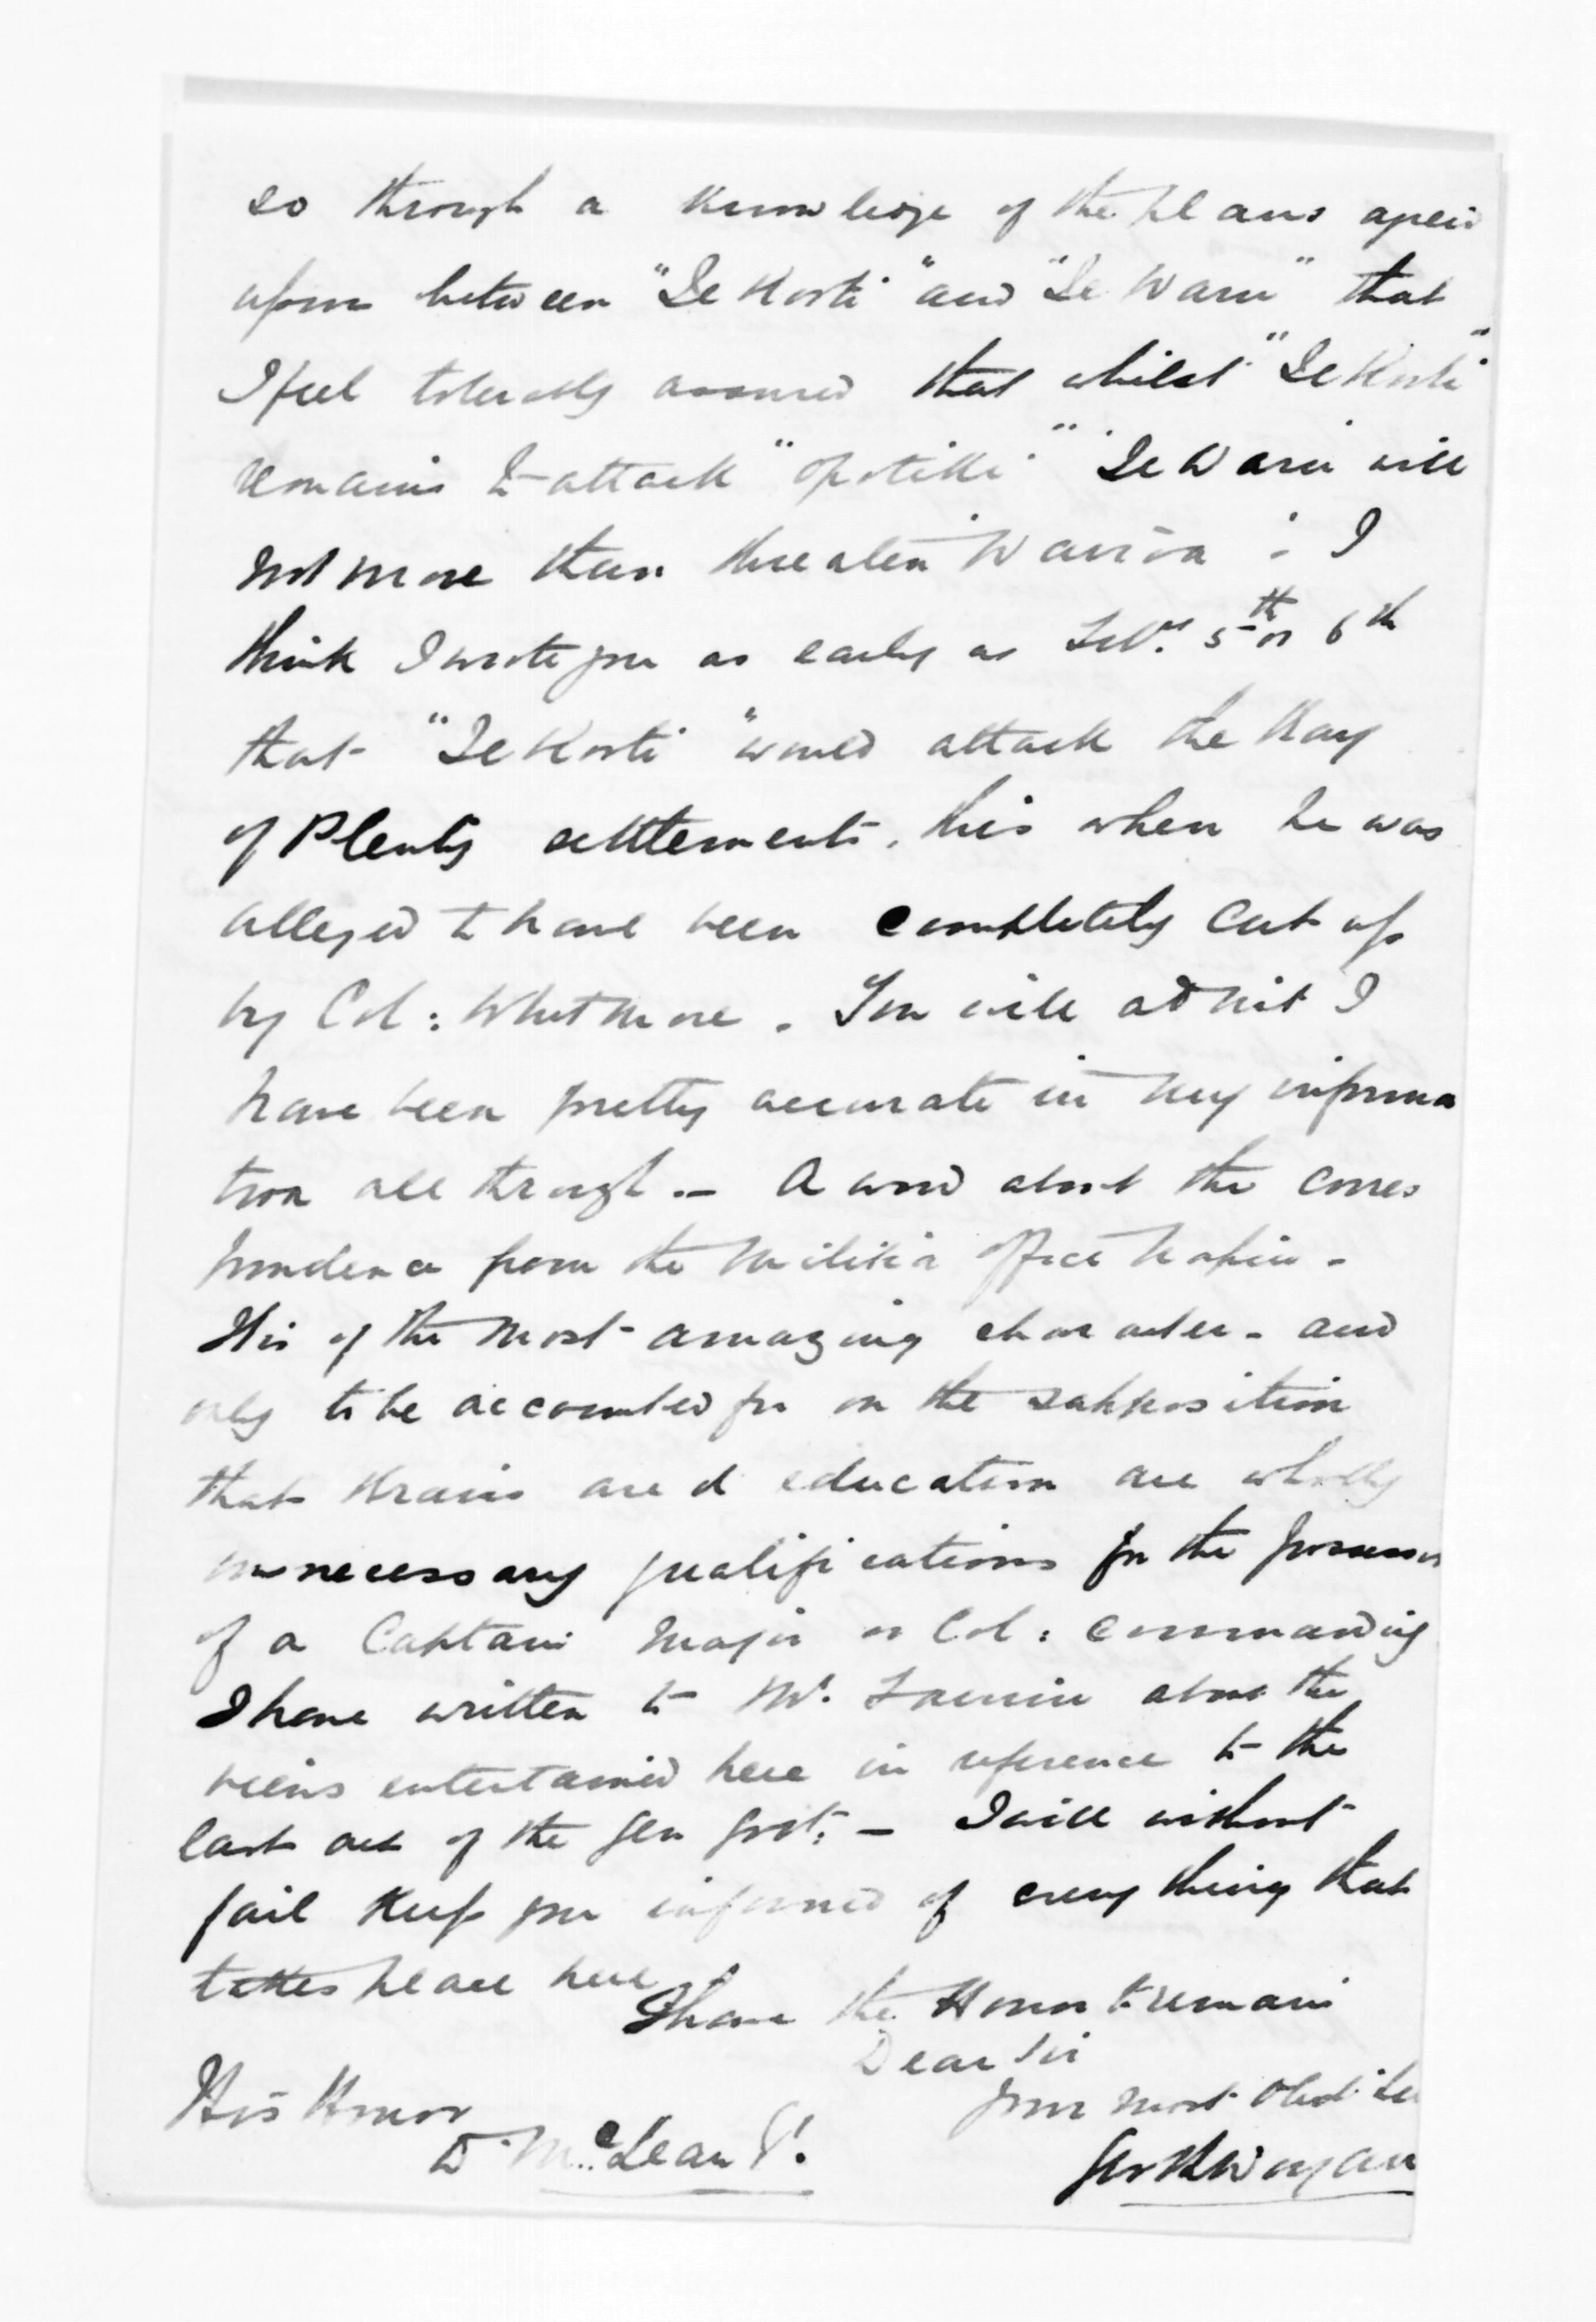 so through a knowledge of the plans agreed
upon between "Te Koti" and "Te Waru" that
I feel tolerably assured that whilst "Te Koti"
remains to attack "Opotiki" "Te Waru will
not more than threaten Wairoa : I
think I wrote you as early as Feby. 5th or 6th
that "Te Koti" would attack the Bay
of Plenty settlements, this when he was
alleged to have been completely cut up
by Col: Whitmore. You will admit I
have been pretty accurate in my informa
tion all through. — A word about the corres
pondence from the Militia Office Napier -
It is of the most amazing character - and
only to be accounted for on the supposition
that brains and education are wholly
unnecessary qualifications for the possessor
of a Captain Major or Col: commanding
I have written to Mr. about the
views entertained here in reference to the
last act of the Gen Govt: — I will without
fail keep you informed of every thing that
takes place here
I have the Honor to remain
Dear Sir
Your most Obed. Se
His Honor
D. McLean
Geo B Worgan